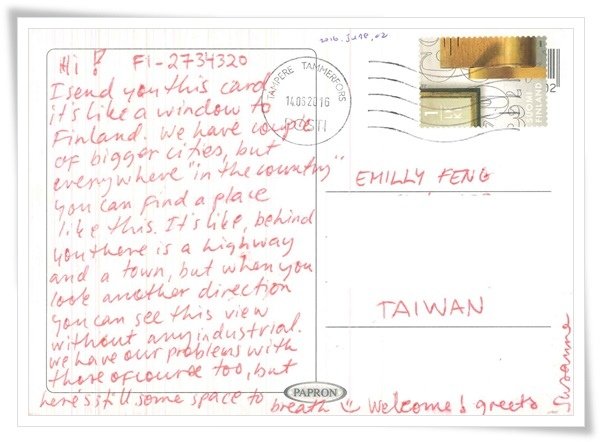 2016.June,02
Hi! FI-2734320
I send you this card,
it's like a window to
Finland. We have couple
of bigger cities, but
everywhere "in the country"
you can find a place
like this. It's like, behind
you there is a highway
and a town, but when you
look another direction
you can see this view
without any industrial.
We have our problems with
those ofcource too, but
here's still some space to breath Welcome! greets
Susanne
TAMPERE TAMMERFORS
14.03.2016
POSTI
1
SUOMI
FINLAND
02
EMILLY FENG
TAIWAN
PAPRON